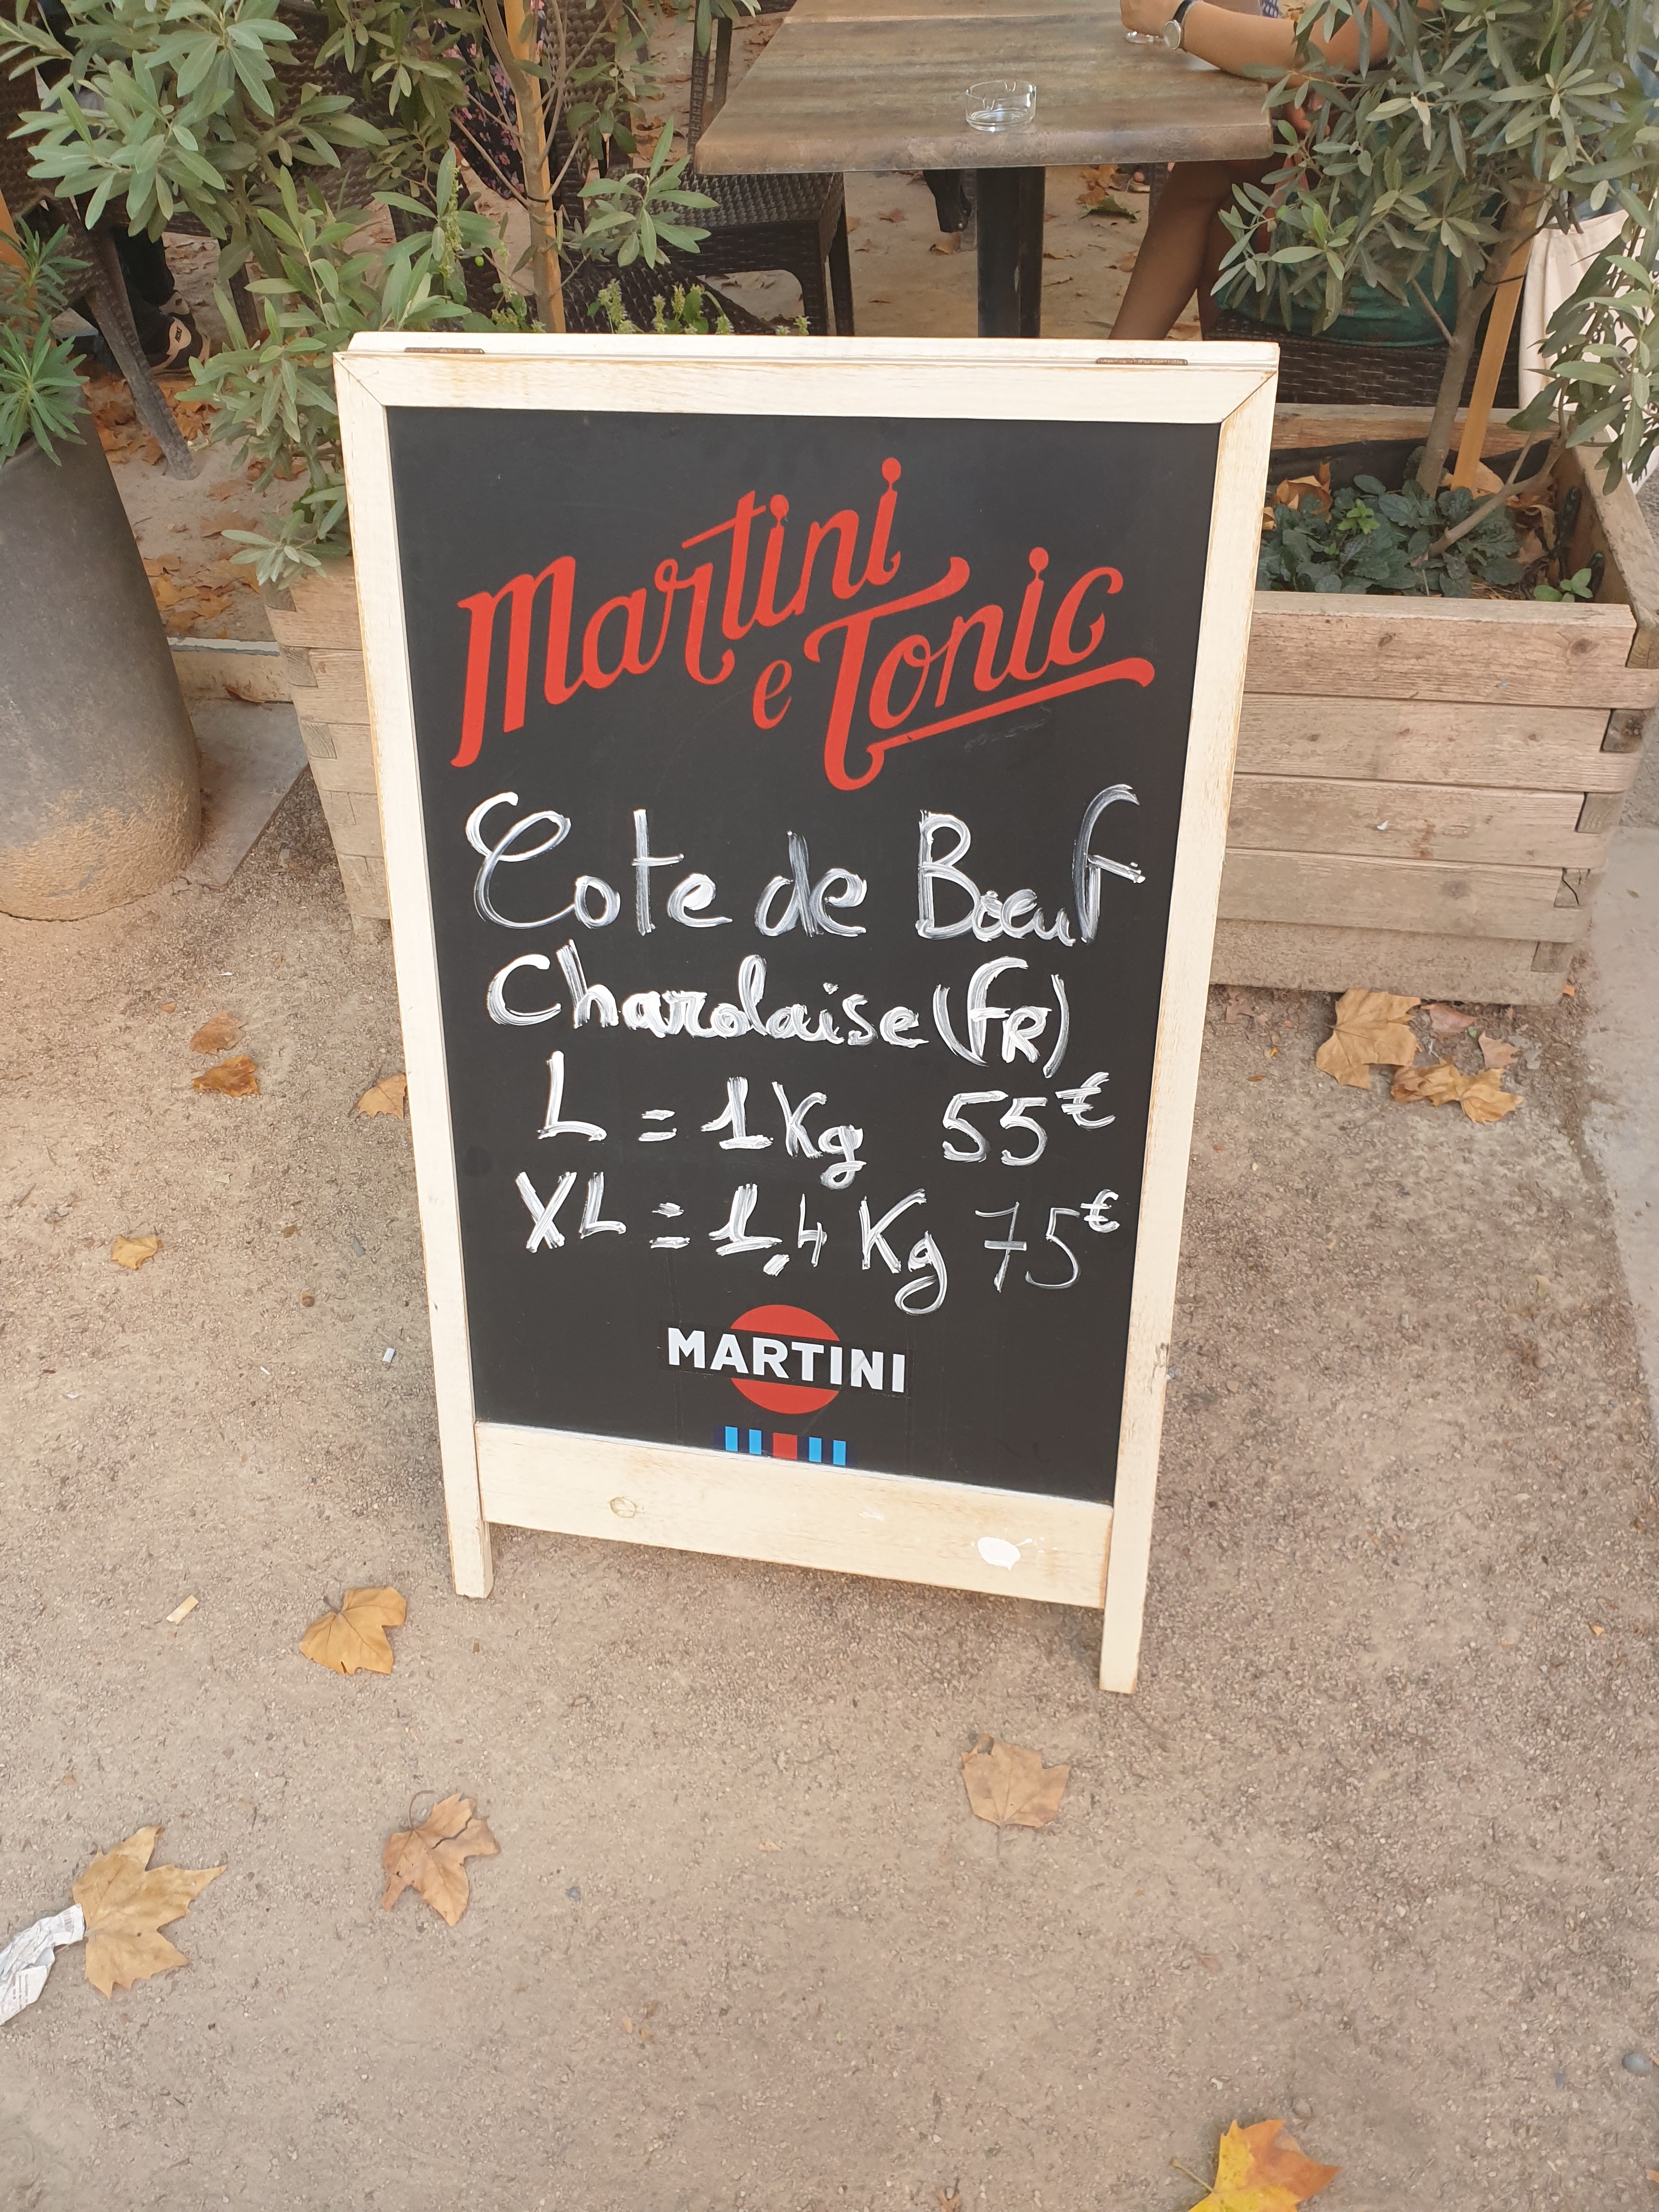 Martini
e Tonic
Cote de Bœuf
Charolaise (FR)
L = 1Kg 55€
XL = 1,4 Kg 75€
MARTINI